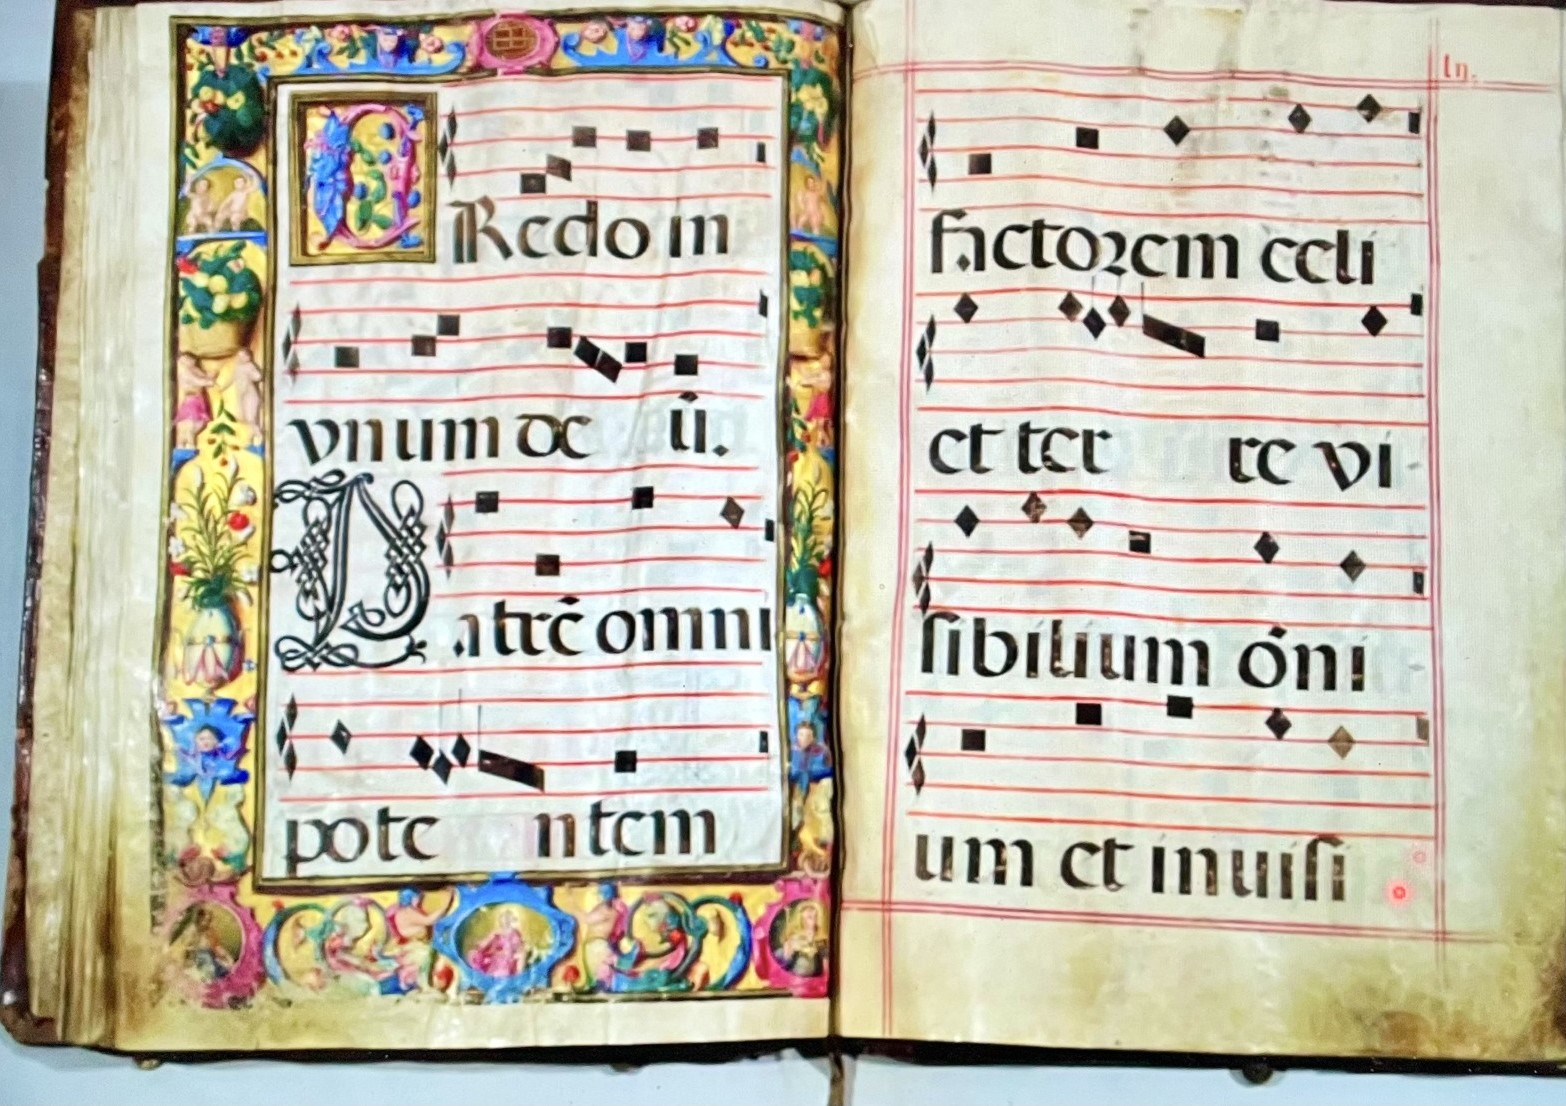 CRedo in
vnum de ū.
Patrē omni
pote ntem
ln.
factorem celi
et ter re vi
sibilium ōni
um et inuisi